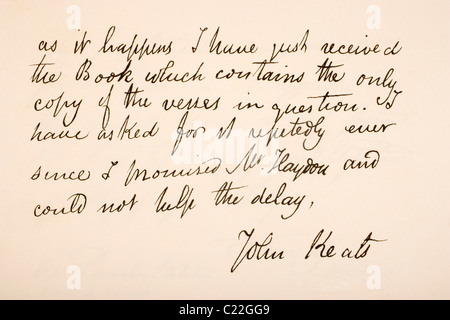 as it happens I have just received
the Book which contains the only
copy of the verses in question. I
have asked for it repetedly ever
since I promised Mr Haydon and
could not help the delay.
John Keats
alamy
www.alamy.com
C22GG9